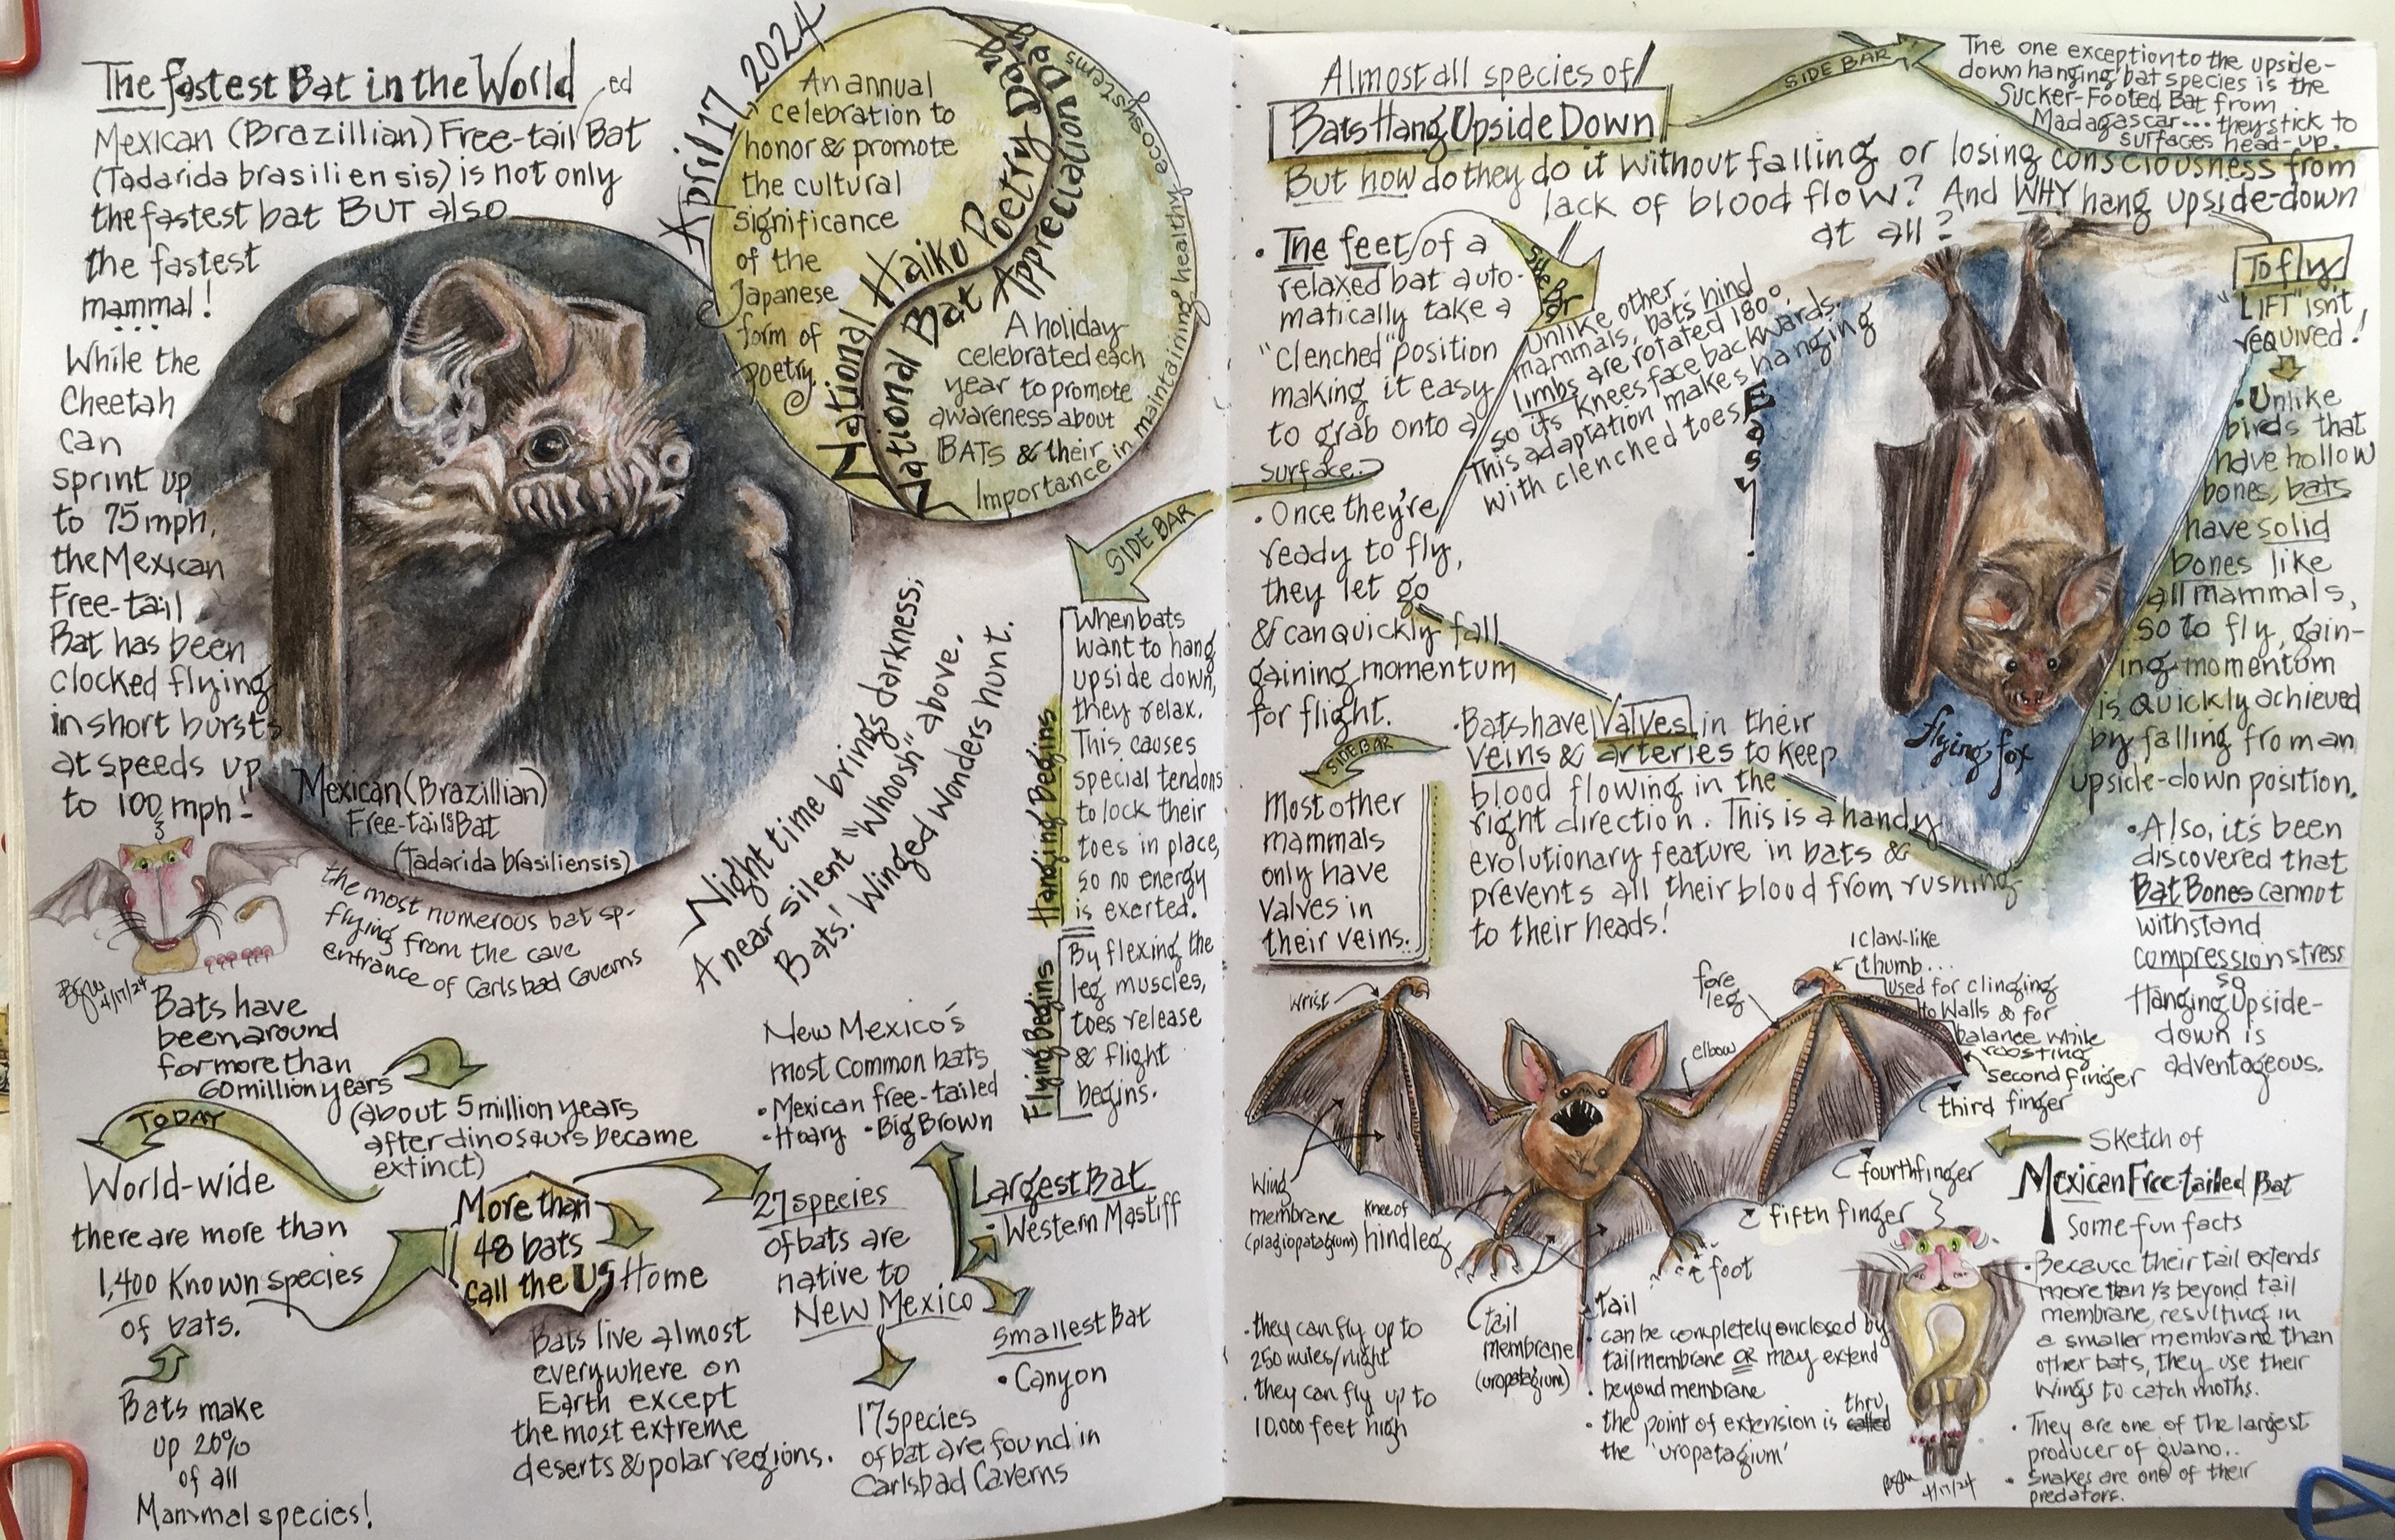 The fastest Bat in the World
ed
Mexican (Brazillian) Free-tail Bat
(Tadarida brasiliensis) is not only
the fastest bat BUT also
the fastest
mammal!
While the
Cheetah
can
sprint up
to 75 mph,
the Mexican
Free-tail
Bat has been
clocked flying
in short bursts
at speeds up
to 100 mph!
Mexican (Brazillian)
Free-tail Bat
(Tadarida brasiliensis)
the most numerous bat sp-
flying from the cave
entrance of Carlsbad Caverns
4/17/24
April 17, 2024
An annual
celebration to
honor & promote
the cultural
significance
of the
Japanese
form of
poetry.
National Haiko Poetry Day
National Bat Appreciation Day
A holiday
celebrated each
year to promote
awareness about
BATS & their
Importance in maintaining healthy ecosystems
Night time brings darkness;
A near silent "Whoosh" above.
Bats! Winged Wonders hunt.
SIDE BAR
Hanging Begins
When bats
want to hang
upside down,
they relax.
This causes
special tendons
to lock their
toes in place,
so no energy
is exerted.
Flying Begins
By flexing the
leg muscles,
toes release
& flight
begins.
Bats have
been around
for more than
60 million years
(about 5 million years
after dinosaurs became
extinct)
TODAY
World-wide
there are more than
1,400 Known species
of bats.
Bats make
up 20%
of all
Mammal species!
More than
48 bats
call the US Home
Bats live almost
everywhere on
Earth except
the most extreme
deserts & polar regions.
New Mexico's
most common bats
• Mexican free-tailed
• Hoary • Big Brown
27 species
of bats are
native to
New Mexico
Largest Bat
• Western Mastiff
Smallest Bat
• Canyon
17 species
of bat are found in
Carlsbad Caverns
Almost all species of
Bats Hang Upside Down
SIDE BAR
The one exception to the upside-
down hanging bat species is the
Sucker-Footed Bat from
Madagascar... they stick to
surfaces head-up.
But how do they do it without falling or losing consciousness from
lack of blood flow? And WHY hang upside-down
at all?
• The feet of a
relaxed bat auto-
matically take a
"clenched" position
making it easy
to grab onto a
surface.
SIDE BAR
Unlike other
mammals, bats hind
limbs are rotated 180°
so its knees face backwards.
This adaptation makes hanging
with clenched toes
Easy!
• Once they're
ready to fly,
they let go
& can quickly fall
gaining momentum
for flight.
flying fox
To fly,
"LIFT" isn't
required!
• Unlike
birds that
have hollow
bones, bats
have solid
bones like
all mammals,
so to fly, gain-
ing momentum
is quickly achieved
by falling from an
upside-down position.
• Also, it's been
discovered that
Bat Bones cannot
withstand
compression stress
so
Hanging Upside-
down is
advantageous.
• Bats have Valves in their
veins & arteries to keep
blood flowing in the
right direction. This is a handy
evolutionary feature in bats &
prevents all their blood from rushing
to their heads!
SIDE BAR
Most other
mammals
only have
valves in
their veins.
wrist
fore
leg
elbow
1 claw-like
thumb...
used for clinging
to walls & for
balance while
roosting
second finger
third finger
fourth finger
fifth finger
foot
Wing
membrane
(plagiopatagium)
knee of
hind leg
tail
membrane
(uropatagium)
tail
• can be completely enclosed by
tail membrane OR may extend
• beyond membrane
• the point of extension is called thru
the 'uropatagium'
• they can fly up to
250 miles/night
• they can fly up to
10,000 feet high
Sketch of
Mexican Free-tailed Bat
Some fun facts
• Because their tail extends
more than 1/3 beyond tail
membrane, resulting in
a smaller membrane than
other bats, they use their
wings to catch moths.
• They are one of the largest
producer of guano..
• Snakes are one of their
predators.
4/17/24